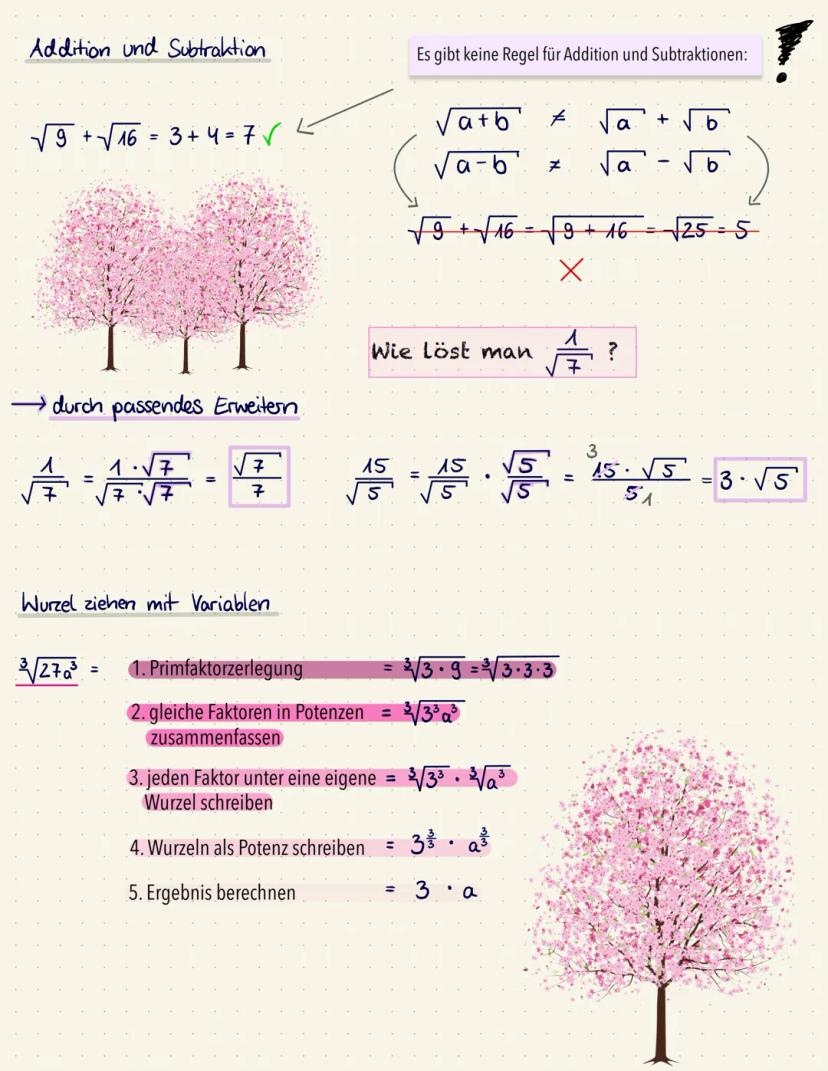 Addition und Subtraktion
Es gibt keine Regel für Addition und Subtraktionen:
√9 + √16 = 3 + 4 = 7 ✓
√(a+b) ≠ √a + √b
√(a-b) ≠ √a - √b
√9 + √16 = √(9 + 16) = √25 = 5
Wie löst man 1/√7 ?
→ durch passendes Erweitern
1/√7 = (1 · √7)/(√7 · √7) = √7/7
15/√5 = 15/√5 · √5/√5 = (15 · √5)/5 = 3 · √5
3
1
Wurzel ziehen mit Variablen
∛(27a³) =
1. Primfaktorzerlegung = ∛(3 · 9) = ∛(3 · 3 · 3)
2. gleiche Faktoren in Potenzen = ∛(3³a³)
zusammenfassen
3. jeden Faktor unter eine eigene = ∛(3³) · ∛(a³)
Wurzel schreiben
4. Wurzeln als Potenz schreiben = 3^(3/3) · a^(3/3)
5. Ergebnis berechnen = 3 · a